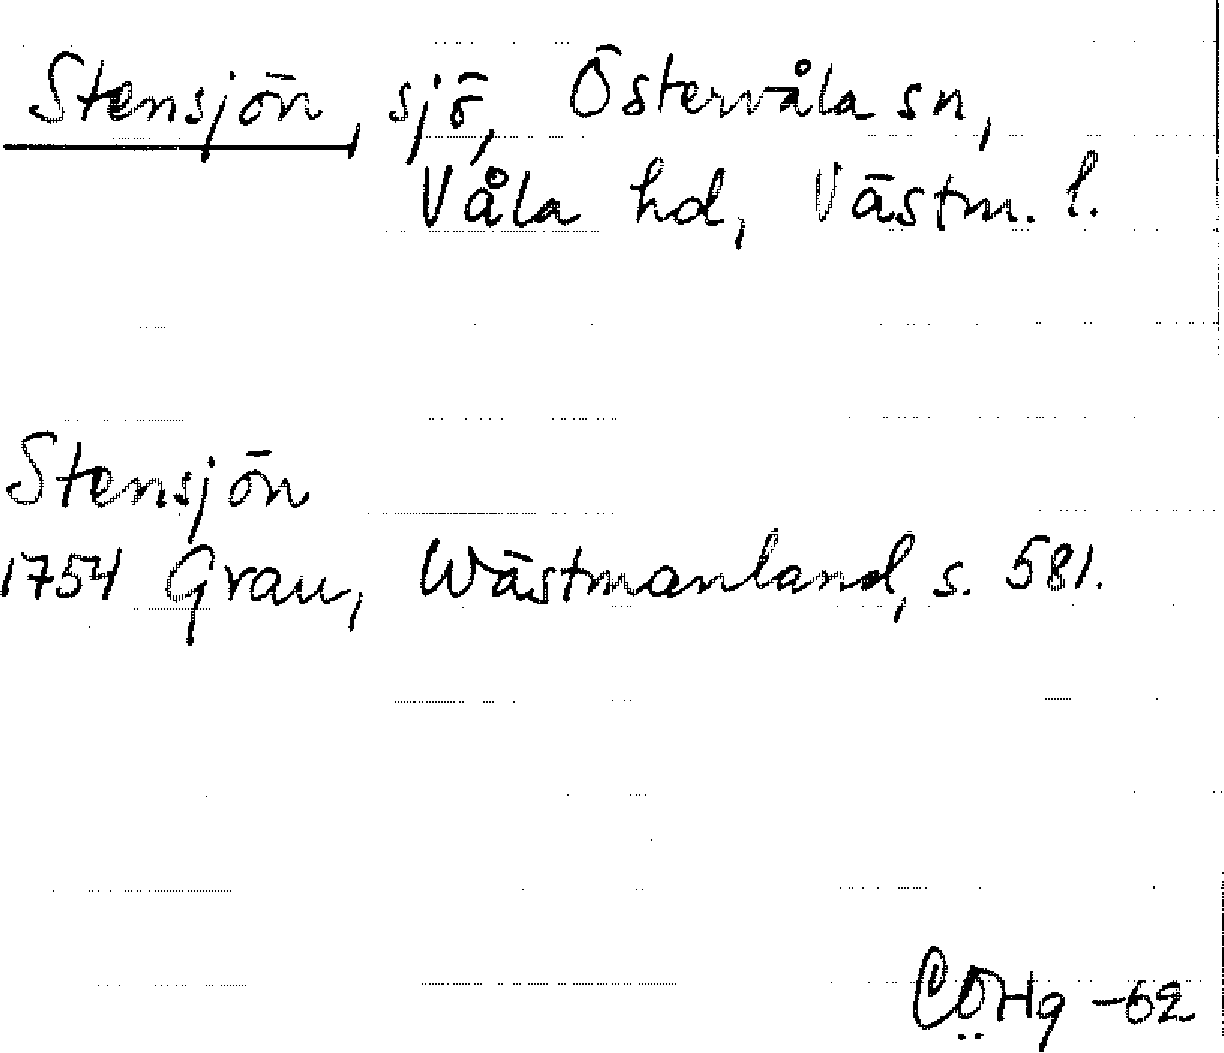 Stensjön, sjö, Östervåla sn,
Våla hd, Västm. l.
Stensjön
1754 Grau, Wästmanland, s. 581.
CÖHg -62